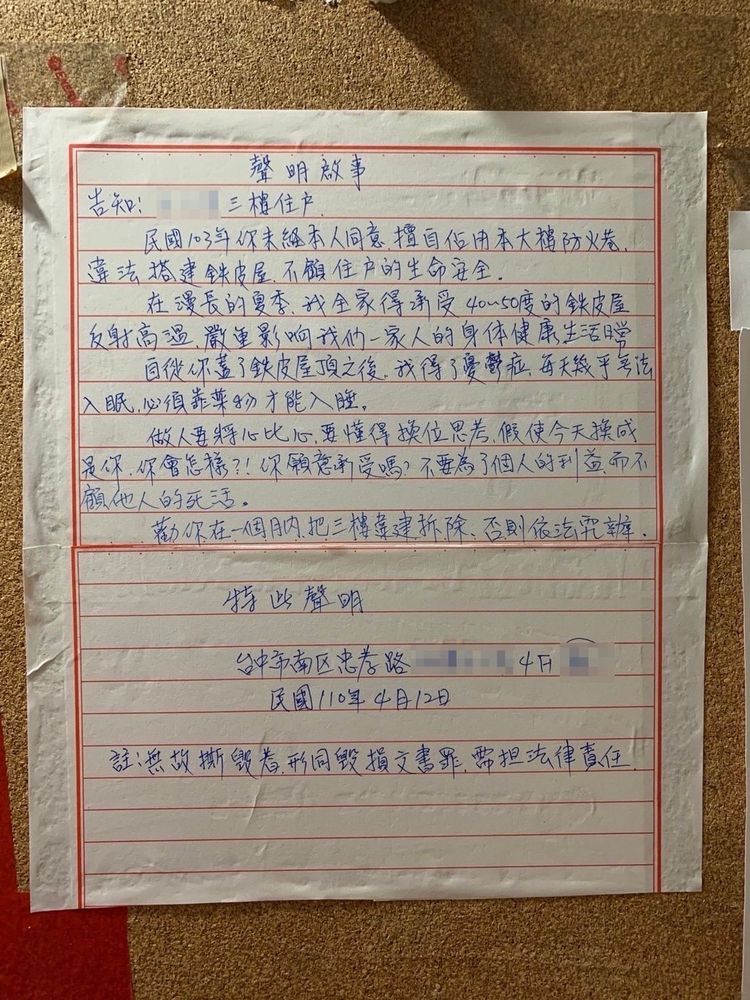 聲明啟事
告知: 三樓住戶
民國103年你未經本人同意,擅自佔用本大樓防火巷,
違法搭建鉄皮屋,不顧住戶的生命安全.
在漫長的夏季,我全家得承受40~50度的鉄皮屋
反射高溫,嚴重影响我們一家人的身体健康生活日常
自從你蓋了鉄皮屋頂之後,我得了憂鬱症,每天幾乎無法
入眠,必須靠藥物才能入睡。
做人要將心比心,要懂得換位思考,假使今天換成
是你,你會怎樣?!你願意承受嗎?不要為了個人的利益,而不
顧他人的死活。
勸你在一個月內,把三樓違建拆除,否則依法究辦.
特此聲明
台中市南区忠孝路 4F
民國110年4月12日
註:無故撕毀者,形同毀損文書罪,需担法律責任.